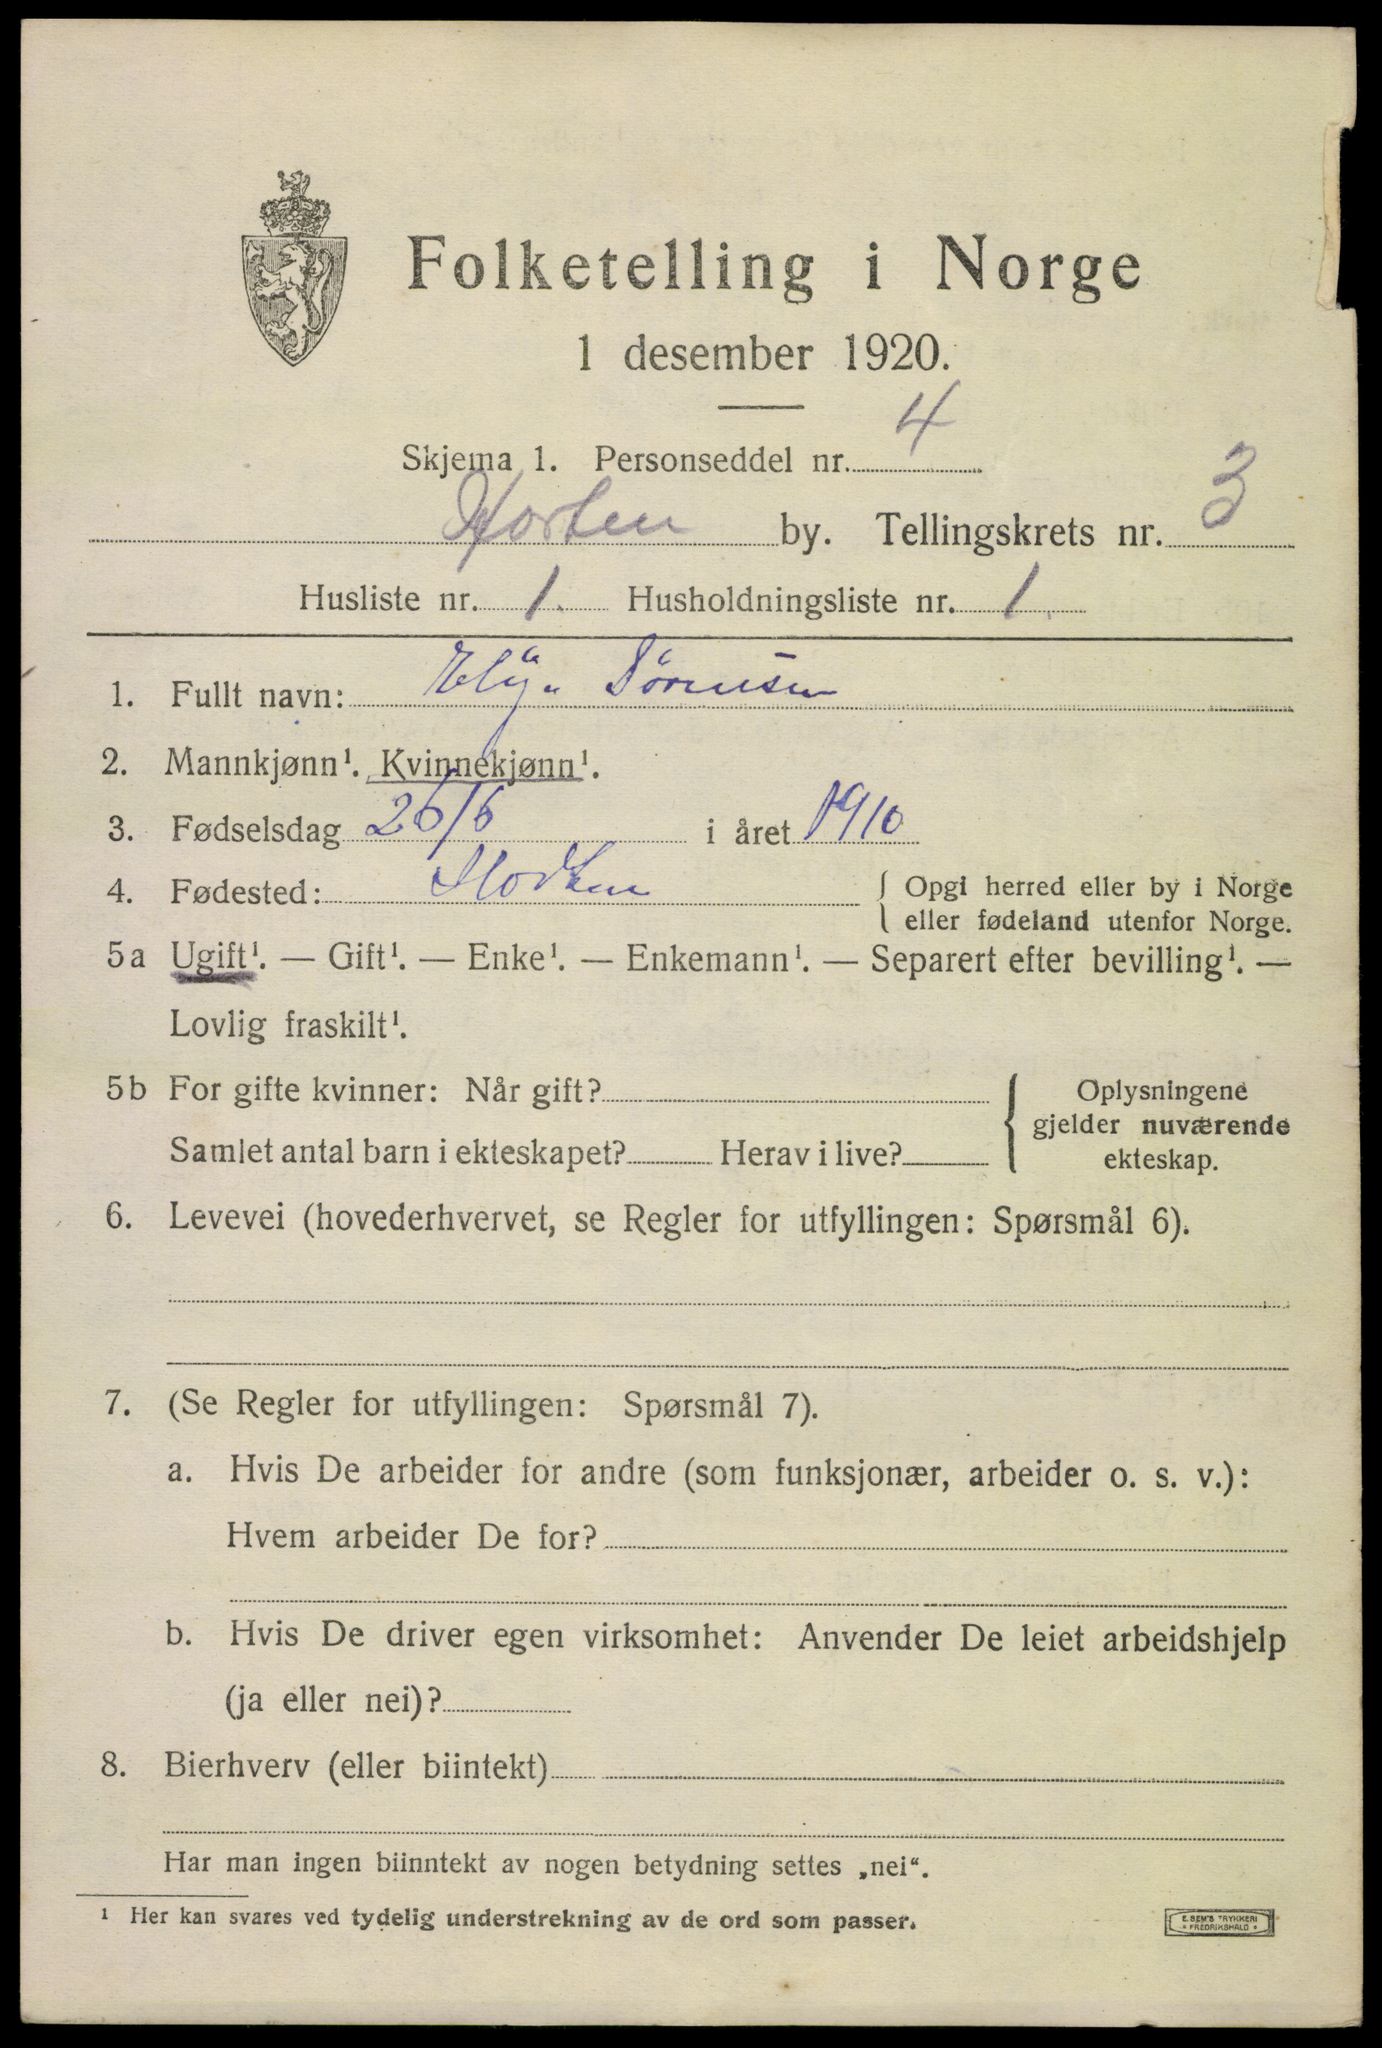 Folketelling i Norge
1 desember 1920.
Skjema 1. Personseddel nr. 4
Horten by. Tellingskrets nr. 3
Husliste nr. 1. Husholdningsliste nr. 1.
1. Fullt navn: Sørensen
2. Mannkjønn¹. Kvinnekjønn¹.
3. Fødselsdag 26/6 i året 1910
4. Fødested: Horten { Opgi herred eller by i Norge
eller fødeland utenfor Norge.
5a Ugift¹. — Gift¹. — Enke¹. — Enkemann¹. — Separert efter bevilling¹. —
Lovlig fraskilt¹.
5b For gifte kvinner: Når gift?
Samlet antal barn i ekteskapet? Herav i live?
{ Oplysningene
gjelder nuværende
ekteskap.
6. Levevei (hovederhvervet, se Regler for utfyllingen: Spørsmål 6).
7. (Se Regler for utfyllingen: Spørsmål 7).
a. Hvis De arbeider for andre (som funksjonær, arbeider o. s. v.):
Hvem arbeider De for?
b. Hvis De driver egen virksomhet: Anvender De leiet arbeidshjelp
(ja eller nei)?
8. Bierhverv (eller biintekt)
Har man ingen biinntekt av nogen betydning settes „nei“.
¹ Her kan svares ved tydelig understrekning av de ord som passer.
E. SEM'S TRYKKERI
FREDRIKSHALD